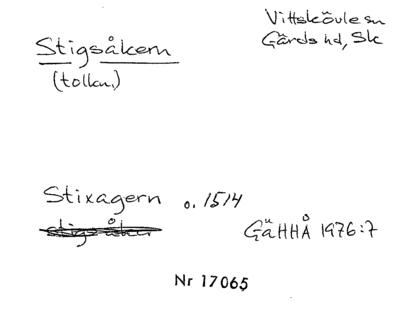 Vittskövle sn
Gärds hd, Sk
Stigsåkern
(tolkn.)
Stixagern o. 1514
stigs åker
GäHHÅ 1976:7
Nr 17065